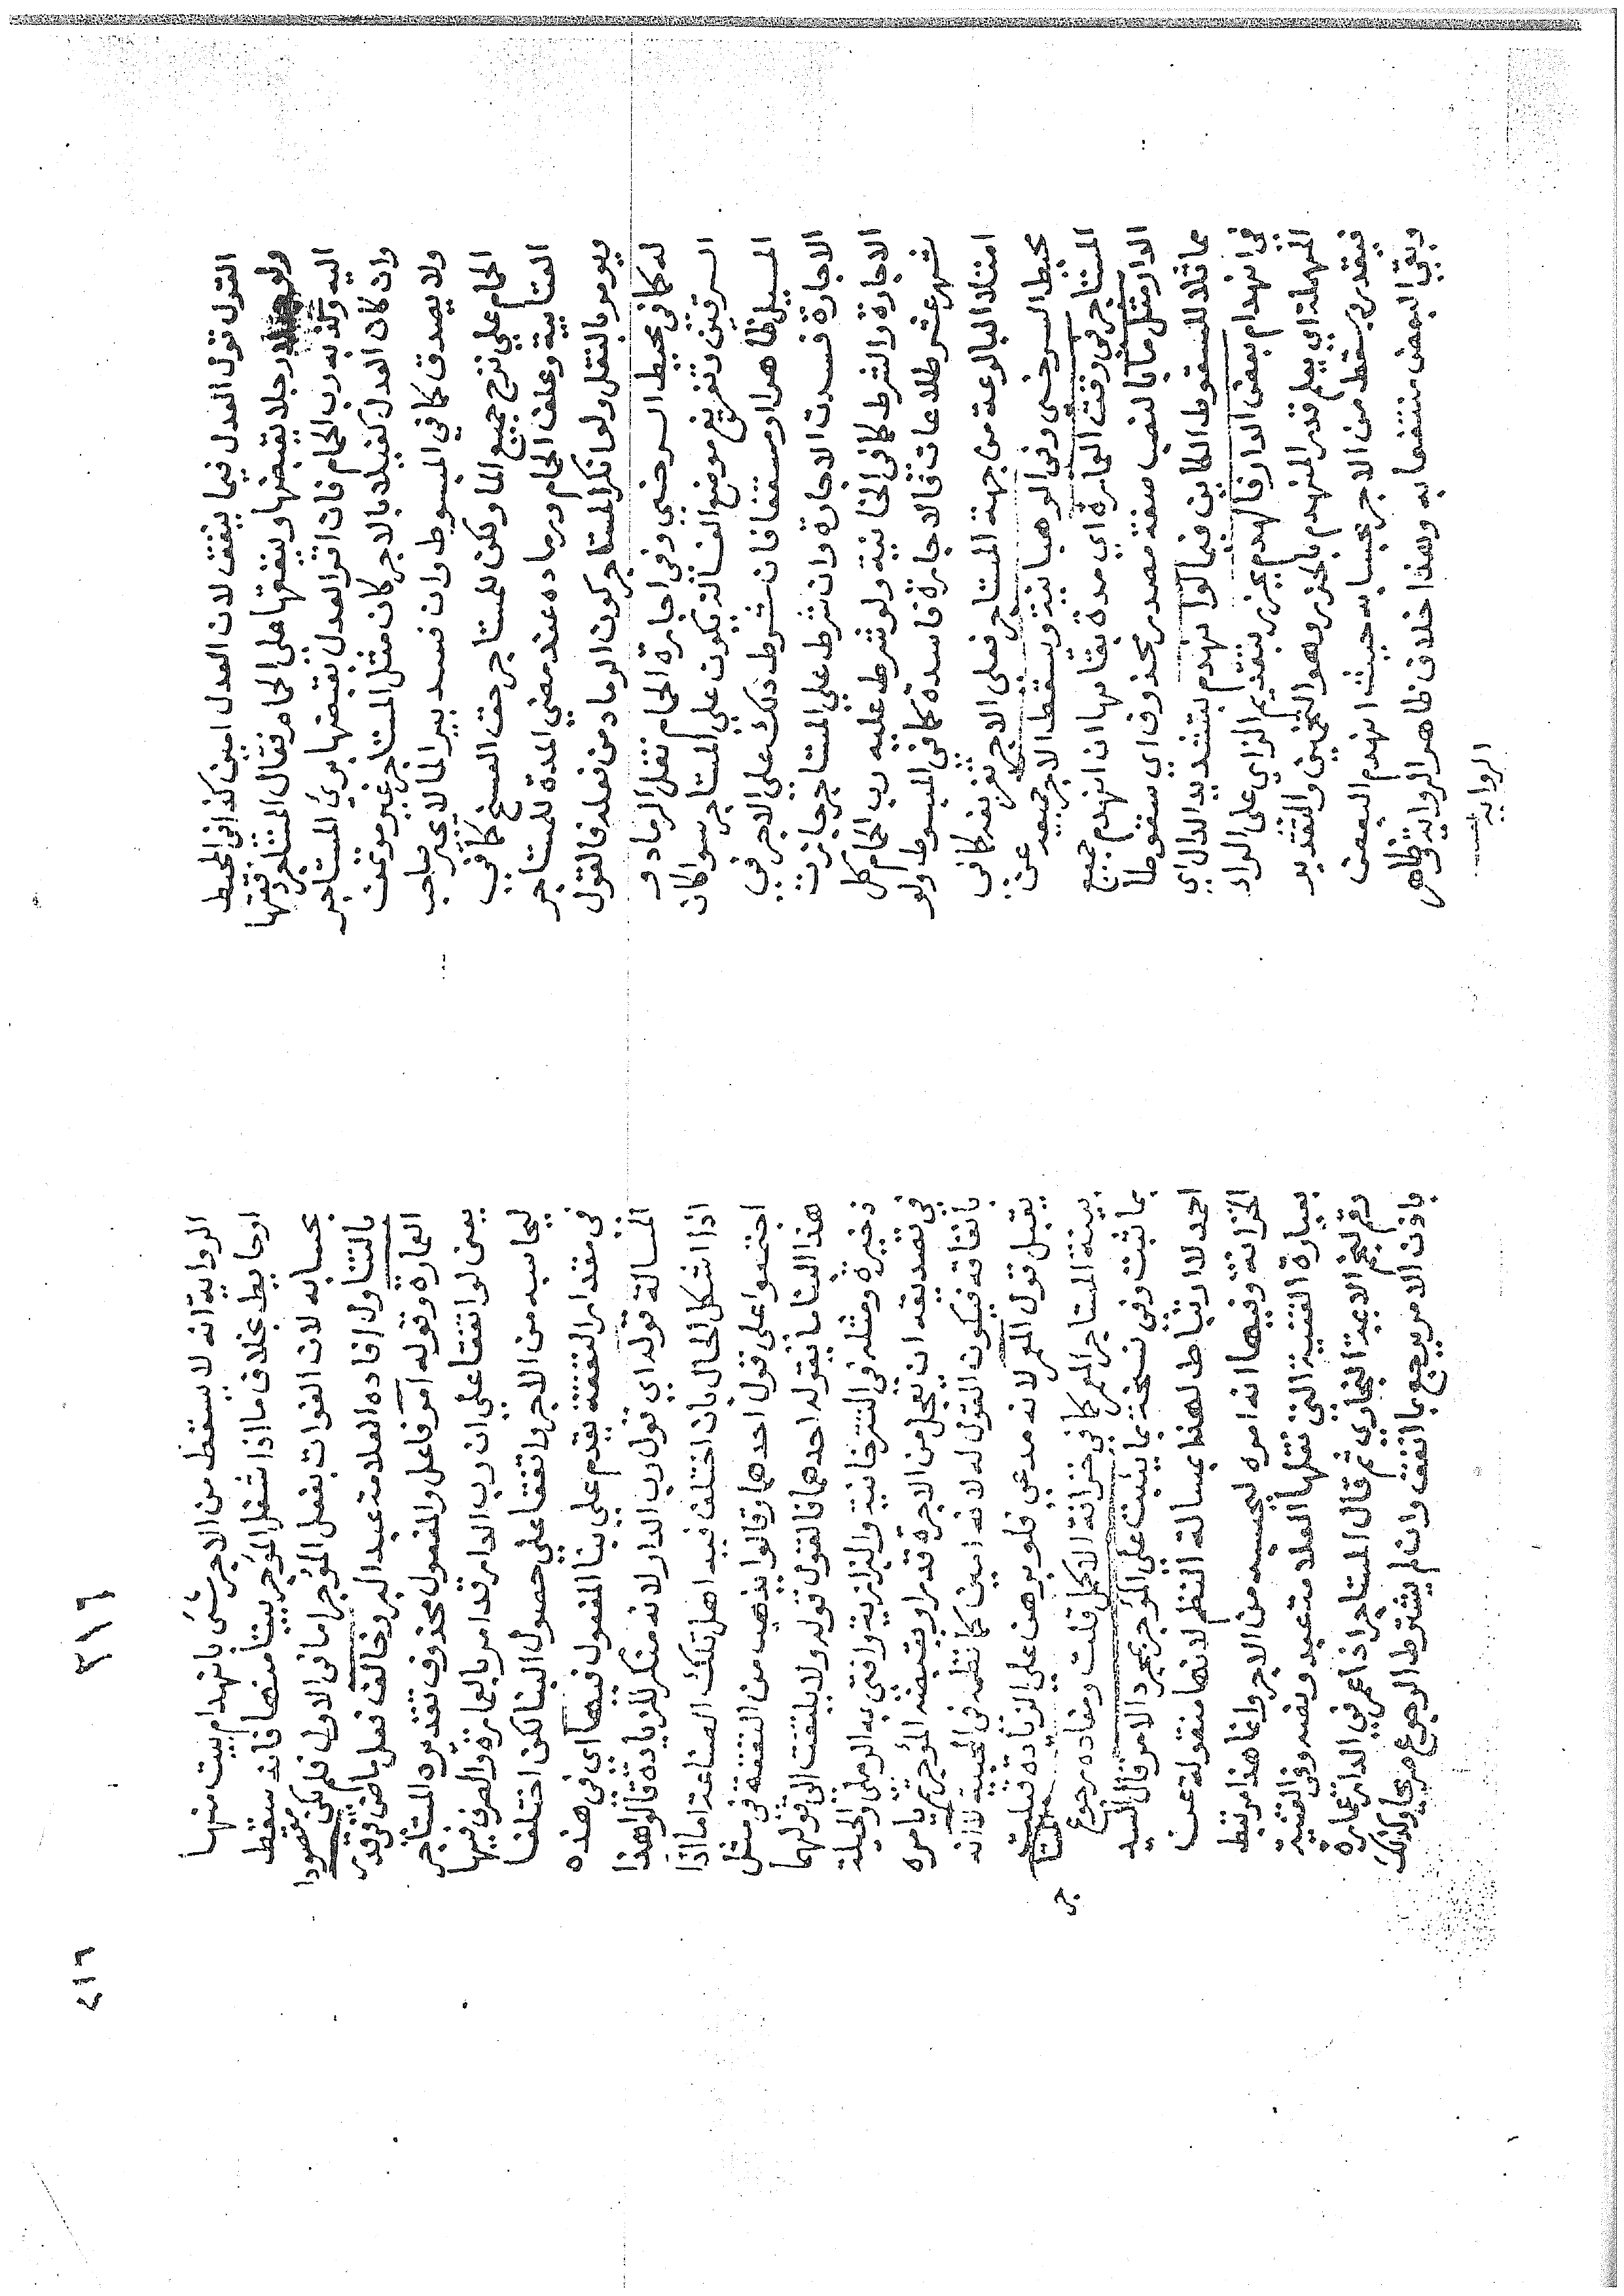 القول قول العدل فيما ينفق لان العدل امين كذا في المحيط
ولو جعلا رجلا يقبضها وينفقها على الحمام فقال المستاجر دفعتها
اليه وكذبه رب الحمام فان اقر العدل بقبضها بري المستاجر
وان كان العدل كفيلا بالاجر كان مثل المستاجر غير موتمن
ولا يصدق كما في المبسوط وان فسد بير الما لا يجبر صاحب
الحمام علي نزح جميع الما ولكن للمستاجر حق الفسخ كما في
العتابية وعلف الحمام ورماده عند مضي المدة للمستاجر
ويومر بالنقل ولو انكر المستاجر كون الرماد من فعله فالقول
له كما في محيط السرخسي وفي اجارة الحمام نقل الرماد و
السرقين وتفريغ موضع الغسالة يكون علي المستاجر سوا كان
المسيل ظاهرا او مسقفا فان شرط ذلك على الاجر في
الاجارة فسدت الاجارة وان شرط علي المستاجر جازت
الاجارة والشرط كما في الخانية ولو شرط عليه رب الحمام كل
شهر عشر طلاعات فالاجارة فاسدة كما في المبسوط ولو
امتلا البالوعة من جهة المستاجر فعلى الاجر تفريغه كما في
محيط السرخسي وفي الوهبانية ويسقط الاجر جميعه عن
المستاجر في وقت العمارة اي مدة بقائها ان انهدم جميع
الدار مثل ما بالنصب صفة مصدر محذوف اي سقوطا
مماثلا للسقوط الكاين فيما لوا نهدم بتشديد الدال اي
في انهدام بعض الدار فالهدم يحزر بتقديم الزاي على الواد
المهملة اي يعلم قدر المنهدم بالحزر وهو التخمين والتقدير
فبقدره يسقط من الاجر بحسابه حيث انهدم البعض
وبقي البعض منتفعا به وهذا خلاف ظاهر الرواية وظاهر
الرواية
٢١٦
الرواية انه لا يسقط من الاجر شئ بانهدام بيت منها
او حايط بخلاف ما اذا شغل المؤجر بيتا منها فانه يسقط
بحسابه لان الفوات بفعل المؤجر اما في الاول فلم يكن مقصودا
بالتناول افاده العلامة عبد البر وخالف فعل ماض في قدر
العمارة وقوله آمر فاعل والمفعول محذوف تقديره المستأجر
يعني لو اتفقا علي ان رب الدار قد امر بالعمارة والصرف فيها
ليحاسبه من الاجر واتفقا علي حصول البنا لكن اختلفا
في مقدار النفقة يقدم علي بنا المفعول فيها اي في هذه
المسالة قوله اي قول رب الدار لانه منكر للزيادة قالوا هذا
اذا اشكل الحال بان اختلف فيه اهل تلك الصناعة اما اذا
اجتمعوا على قول احدهما وقالوا يذهب من النفقة في مثل
هذا البنا ما يقوله احدهما فالقول قوله ولا يلتفت الى قولهما
ذخيرة ومثله في التترخانية والبزازية وافتي به الرملى والحيلة
في تصديقه ان يعجل من الاجرة قدرا ويقبضه المؤجر ثم يامره
بانفاقه فيكون القول له لانه امين كما نظمه في المحبية لانه
يقبل قول المعمر لانه مدعي فلو برهن علي الزيادة قبلت
بينة المستاجر المعمر كما في خزانة الاكمل قلت ومفاده رجوع
بما اثبت وفي نسخة بما يثبت على المؤجر بمجرد الامر قال السيد
احمد لا ارتباط لهذا بمسالة النظم لانها منقولة عن
الخزانة وفيها انه امره ليحسبه من الاجر وانما هذا مرتبط
بعبارة القنية التي نقلها العلامة عبيد وبضه وفي القنية
رقم لنجم الايمة البخاري ثم قال المستاجر اذا عمر في الدار عمارة
باذن الامر يرجع بما انفق وان لم يشترط الرجوع صريحا وكذلك
٤١٦